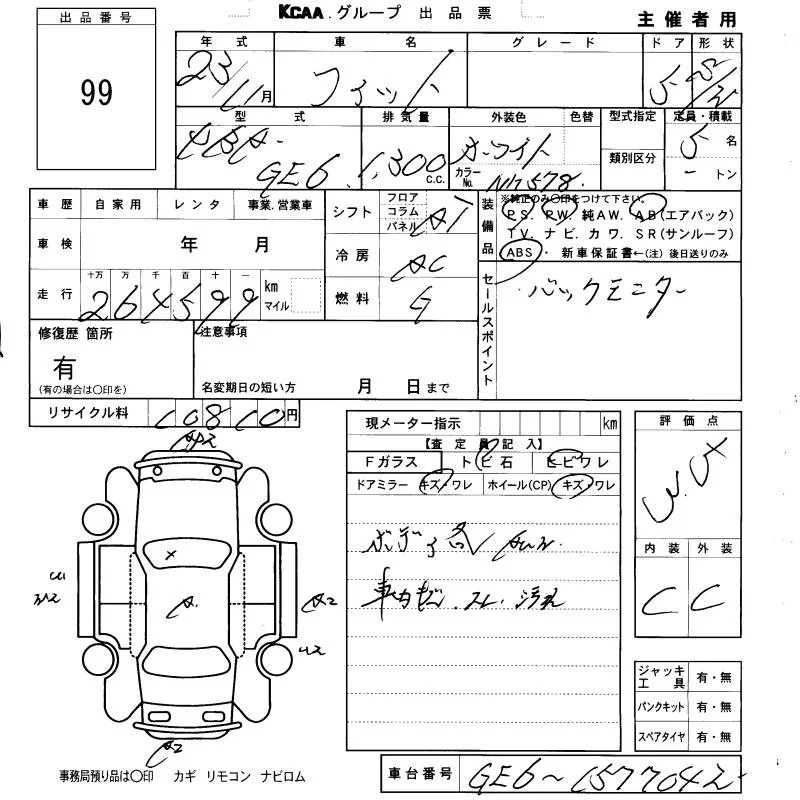 KCAA.グループ 出品票
主催者用
出品番号
99
年式 車名 グレード ドア 形状
23/11月 フィット 5 S/2
型式 排気量 外装色 色替 型式指定 定員・積載
類別区分
DBA-GE6 1,300 C.C. ホワイト カラーNo. NH578 5名 -トン
車歴 自家用 レンタ 事業.営業車
車検 年 月
走行 十万 万 千 百 十 一
264599 km マイル
シフト フロア コラム パネル AT
冷房 AC
燃料 G
装備品 ※純正のみ〇印をつけて下さい。
PS. PW. 純AW. AB(エアバック)
TV. ナビ. カワ. SR(サンルーフ)
ABS・ 新車保証書←(注) 後日送りのみ
セールスポイント
・バックモニター
修復歴 箇所
有
(有の場合は〇印を)
注意事項
名変期日の短い方 月 日まで
リサイクル料 10810円
現メーター指示 km
【査定員記入】
Fガラス トビ石 ヒビワレ
ドアミラー キズ・ワレ ホイール(CP) キズ・ワレ
ボディ各
汚れ
評価点
内装 外装
C C
A2
A2
A2
ジャッキ工具 有・無
パンクキット 有・無
スペアタイヤ 有・無
事務局預り品は〇印 カギ リモコン ナビロム
車台番号 GE6~1577042-